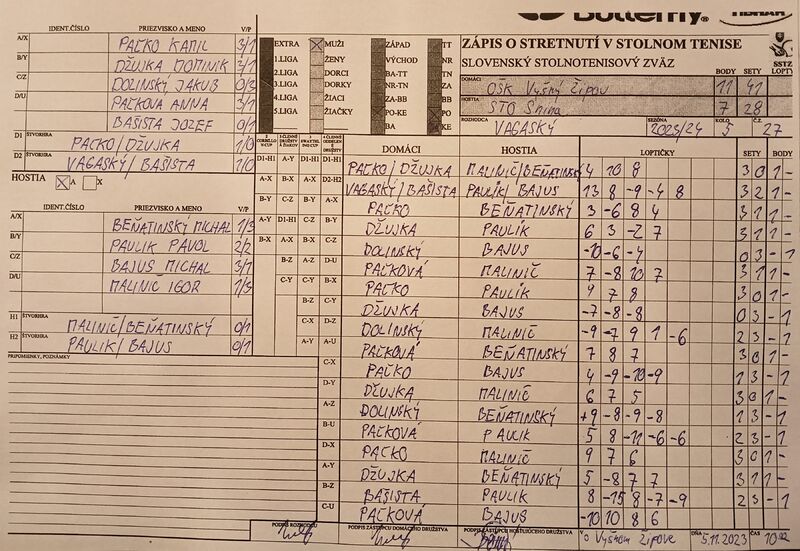 Butterfly®
ZÁPIS O STRETNUTÍ V STOLNOM TENISE
SLOVENSKÝ STOLNOTENISOVÝ ZVÄZ
SSTZ
BODY SETY LOPTY
DOMÁCI OŠK Vyšný Žipov 11 41
HOSTIA STO Snina 7 28
ROZHODCA VAGASKÝ 2023/24 KOLO 5 Č.Z. 27
EXTRA MUŽI ZÁPAD TT
1.LIGA ŽENY VÝCHOD NR
2.LIGA DORCI BA-TT TN
3.LIGA DORKY NR-TN ZA
4.LIGA ŽIACI ZA-BB BB
5.LIGA ŽIAČKY PO-KE PO
BA KE
IDENT.ČÍSLO PRIEZVISKO A MENO V/P
A/X PAĽKO KAMIL 3/1
B/Y DŽUJKA DOMINIK 3/1
C/Z DOLINSKÝ JAKUB 0/3
D/U PAĽKOVÁ ANNA 3/1
BAŠISTA JOZEF 0/1
D1 ŠTVORHRA PAĽKO/DŽUJKA 1/0
D2 VAGASKÝ/BAŠISTA 1/0
HOSTIA A X
IDENT.ČÍSLO PRIEZVISKO A MENO V/P
A/X BEŇATINSKÝ MICHAL 1/3
B/Y PAULIK PAVOL 2/2
C/Z BAJUS MICHAL 3/1
D/U MALINIČ IGOR 1/3
H1 ŠTVORHRA MALINIČ/BEŇATINSKÝ 0/1
H2 PAULIK/BAJUS 0/1
PRIPOMIENKY, POZNÁMKY
DOMÁCI HOSTIA LOPTIČKY SETY BODY
D1-H1 A-Y D1-H1 D1-H1 PAĽKO/DŽUJKA MALINIČ/BEŇATINSKÝ 4 10 8 3 0 1 -
A-X B-X A-X D2-H2 VAGASKÝ/BAŠISTA PAULÍK/BAJUS 13 8 -9 -4 8 3 2 1 -
B-Y C-Z B-Y A-X PAĽKO BEŇATINSKÝ 3 -6 8 4 3 1 1 -
A-Y D1-H1 C-Z B-Y DŽUJKA PAULÍK 6 3 -2 7 3 1 1 -
B-X A-X D1-H1 C-Z DOLINSKÝ BAJUS -10 -6 -4 0 3 - 1
B-Z A-Z D-U PAĽKOVÁ MALINIČ 7 -8 10 7 3 1 1 -
C-Y C-Y B-X PAĽKO PAULÍK 9 7 8 3 0 1 -
B-Z C-Y DŽUJKA BAJUS -7 -8 -8 0 3 - 1
C-X D-Z DOLINSKÝ MALINIČ -9 -7 9 1 -6 2 3 - 1
A-Y A-U PAĽKOVÁ BEŇATINSKÝ 7 8 7 3 0 1 -
C-X PAĽKO BAJUS 4 -9 -10 -9 1 3 - 1
D-Y DŽUJKA MALINIČ 6 7 5 3 0 1 -
A-Z DOLINSKÝ BEŇATINSKÝ +9 -8 -9 -8 1 3 - 1
B-U PAĽKOVÁ PAULIK 5 8 -11 -6 -6 2 3 - 1
D-X PAĽKO MALINIČ 9 7 6 3 0 1 -
A-Y DŽUJKA BEŇATINSKÝ 5 -8 7 7 3 1 1 -
B-Z BAŠISTA PAULIK 8 -15 8 -7 -9 2 3 - 1
C-U PAĽKOVÁ BAJUS -10 10 8 6
PODPIS ROZHODCU PODPIS ZÁSTUPCU DOMÁCEHO DRUŽSTVA PODPIS ZÁSTUPCU HOSŤUJÚCEHO DRUŽSTVA Vo Vyšnom Žipove DŇA 5.11.2023 ČAS